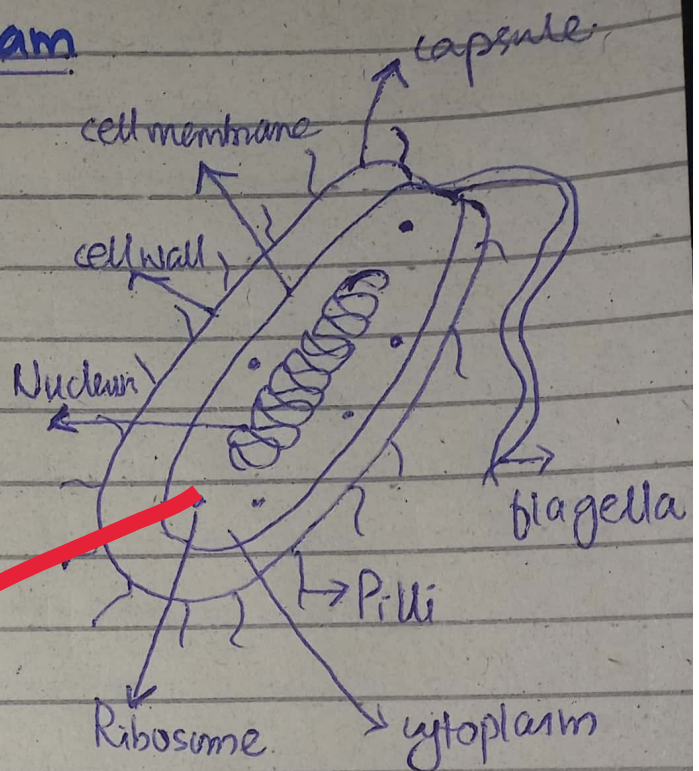 am
capsule
cell membrane
cell wall
flagella
Pilli
Ribosome
cytoplasm